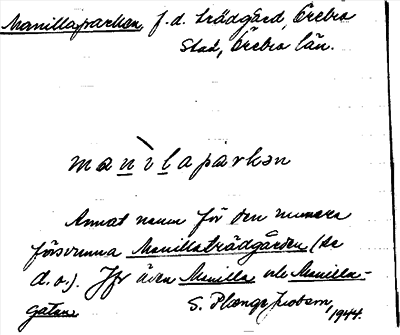 Manillaparken f. d. trädgård, Örebro
stad, Örebro län.
manìlaparkən
Annat namn för den numera
försvunna Manillaträdgården (se
d. o.). Jfr även Manilla och Manilla-
gatan
S. Plænge Jacobson, 1944.